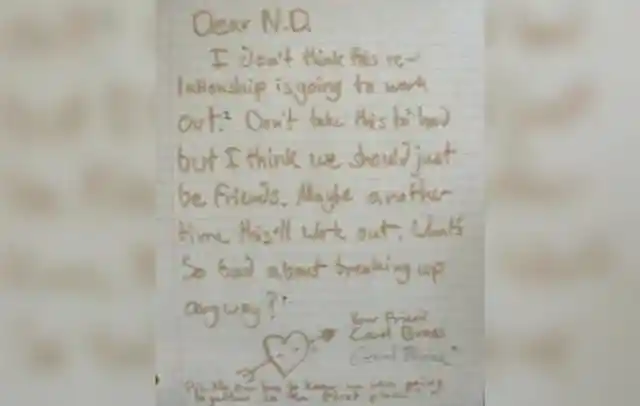 Dear N.D.
I don't think this re-
lationship is going to work
out. Don't take this to bad
but I think we should just
be friends. Maybe another
time this'll work out. What's
so bad about breaking up
anyway?
Your Friend
P.S. No one has to know we were going
together in the first place.